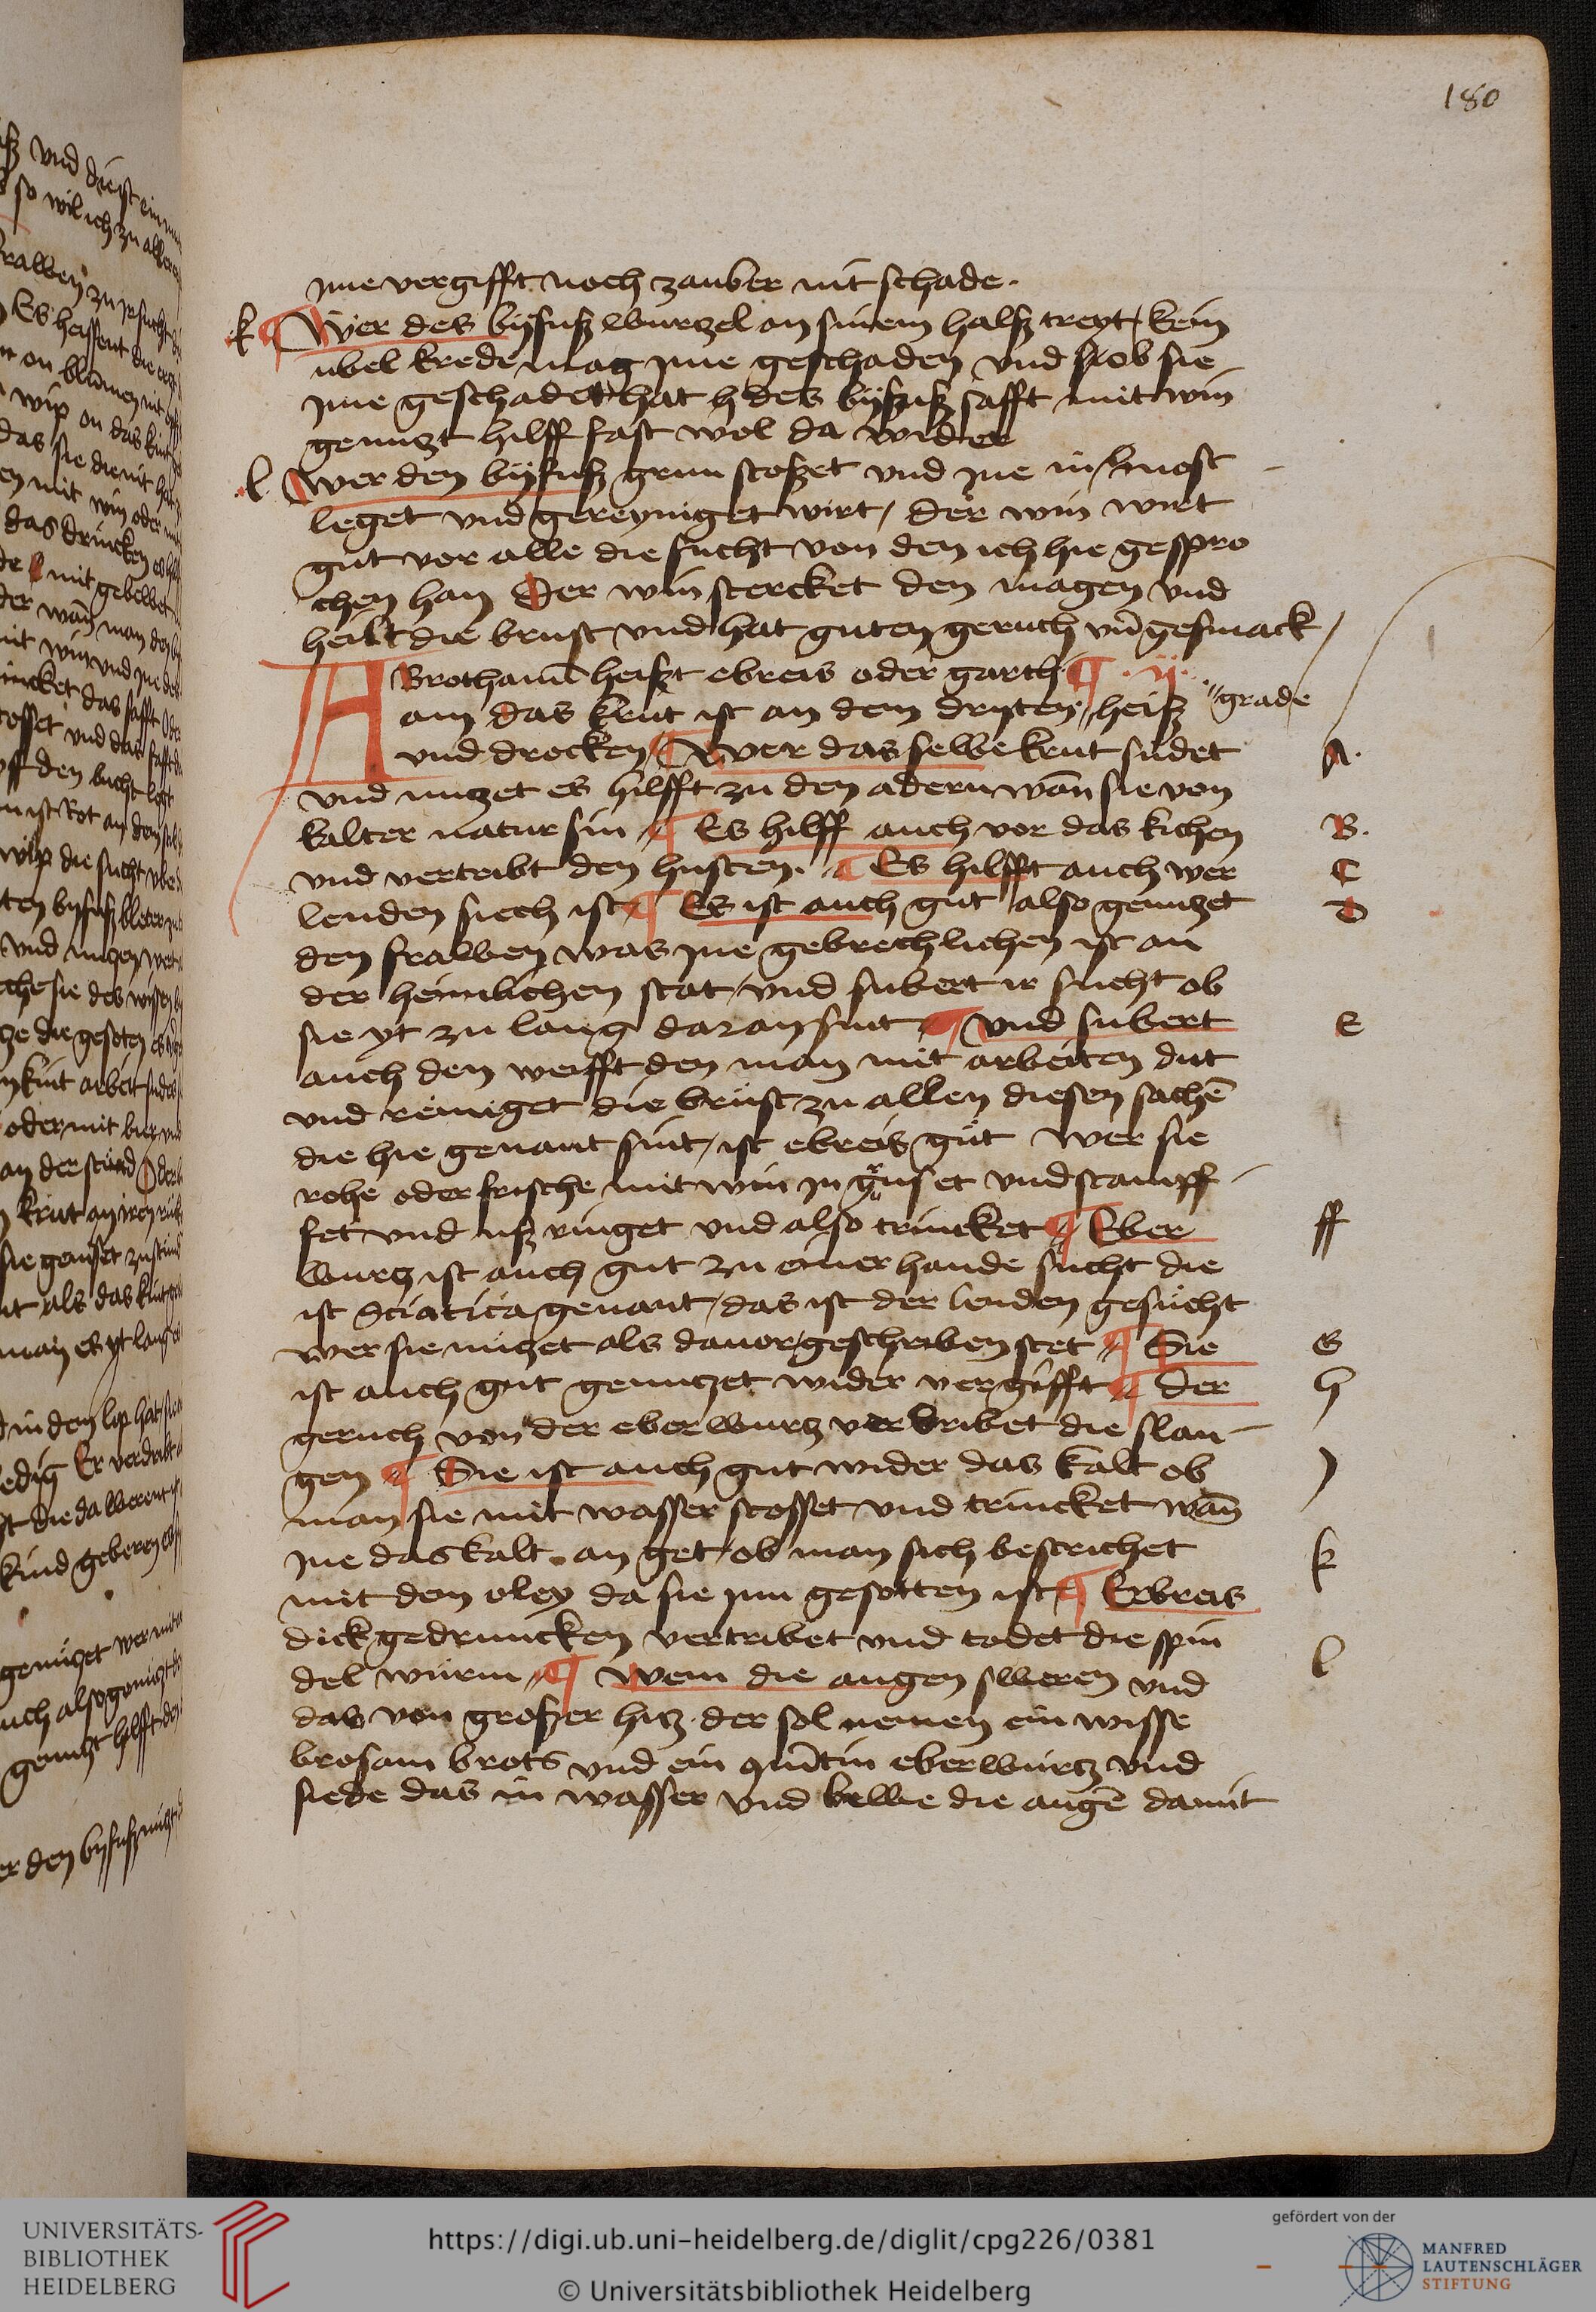 180
jme vergifft noch zauber nit schade.
k ¶ Wer des byfuß wurtzel an sinem halß treyt, kein
ubel krede mag jme geschaden vnd ob sie
jme geschadet hat des byfuß safft mit win
genutzt hilff fast wol da wider
.l. wer den byfuß grun stoßet vnd jne in most
leget vnd gereyniget wirt, der win wirt
gut vor alle die sucht von den ich hie gespro
chen han Der win stercket den magen vnd
heilt die brust vnd hat guten geruch vn̄ gesmack
ABrothanū heißt ebreis oder garth ¶ .ij.
am das krut ist an dem dryten "heiß "grade
vnd drocken ¶ wer das selbe krut sudet A.
vnd nutzet es hilfft zu den adern wan̄ sie von
kalter natur sin ¶ Es hilff auch vor das kichen B.
vnd vertribt den husten. ¶ Es hilfft auch wer C
lenden siech ist ¶ Es ist auch gut also genutzet D
den frawen was jne gebrechlichen ist an
der heimlichen stat, vnd subert ir sucht ob
sie yt zu lang daran sint ¶ vnd subert E
auch den werfft den man mit arbeiten dut
vnd reiniget die brust zu allen diesen sachē
die hie genant sint, ist ebreis gut wer sie
rohe oder frische mit win jn guset vnd stampf
fet vnd uß ringet vnd also trincket ¶ Eber ff
wurtz ist auch gut zu einer hande sucht die
ist Sciatica genant, das ist der lenden gesucht
wer sie nutzet als dauor geschriben stet ¶ Sie G
ist auch gut genutzet wider vergifft ¶ der h
geruch von der eberwurtz vertribet die slan
gen ¶ Sie ist auch gut wider das kalt ob J
man sie mit wasser stosset vnd trincket wan̄
jne das kalt an get, ob man sich bestrichet
mit dem oley da sie jnn gesotten ist ¶ Ebreis k
dick gedruncken vertribet vnd todet die spin
del wurm ¶ wem die augen sweren vnd l
das von großer hitz der sol nemen ein wisse
brosam brots vnd ein quītin eberwurtz vnd
siede das in wasser vnd bewe die augē damit
UNIVERSITÄTS-
BIBLIOTHEK
HEIDELBERG
https://digi.ub.uni-heidelberg.de/diglit/cpg226/0381
© Universitätsbibliothek Heidelberg
gefördert von der
MANFRED
LAUTENSCHLÄGER
STIFTUNG